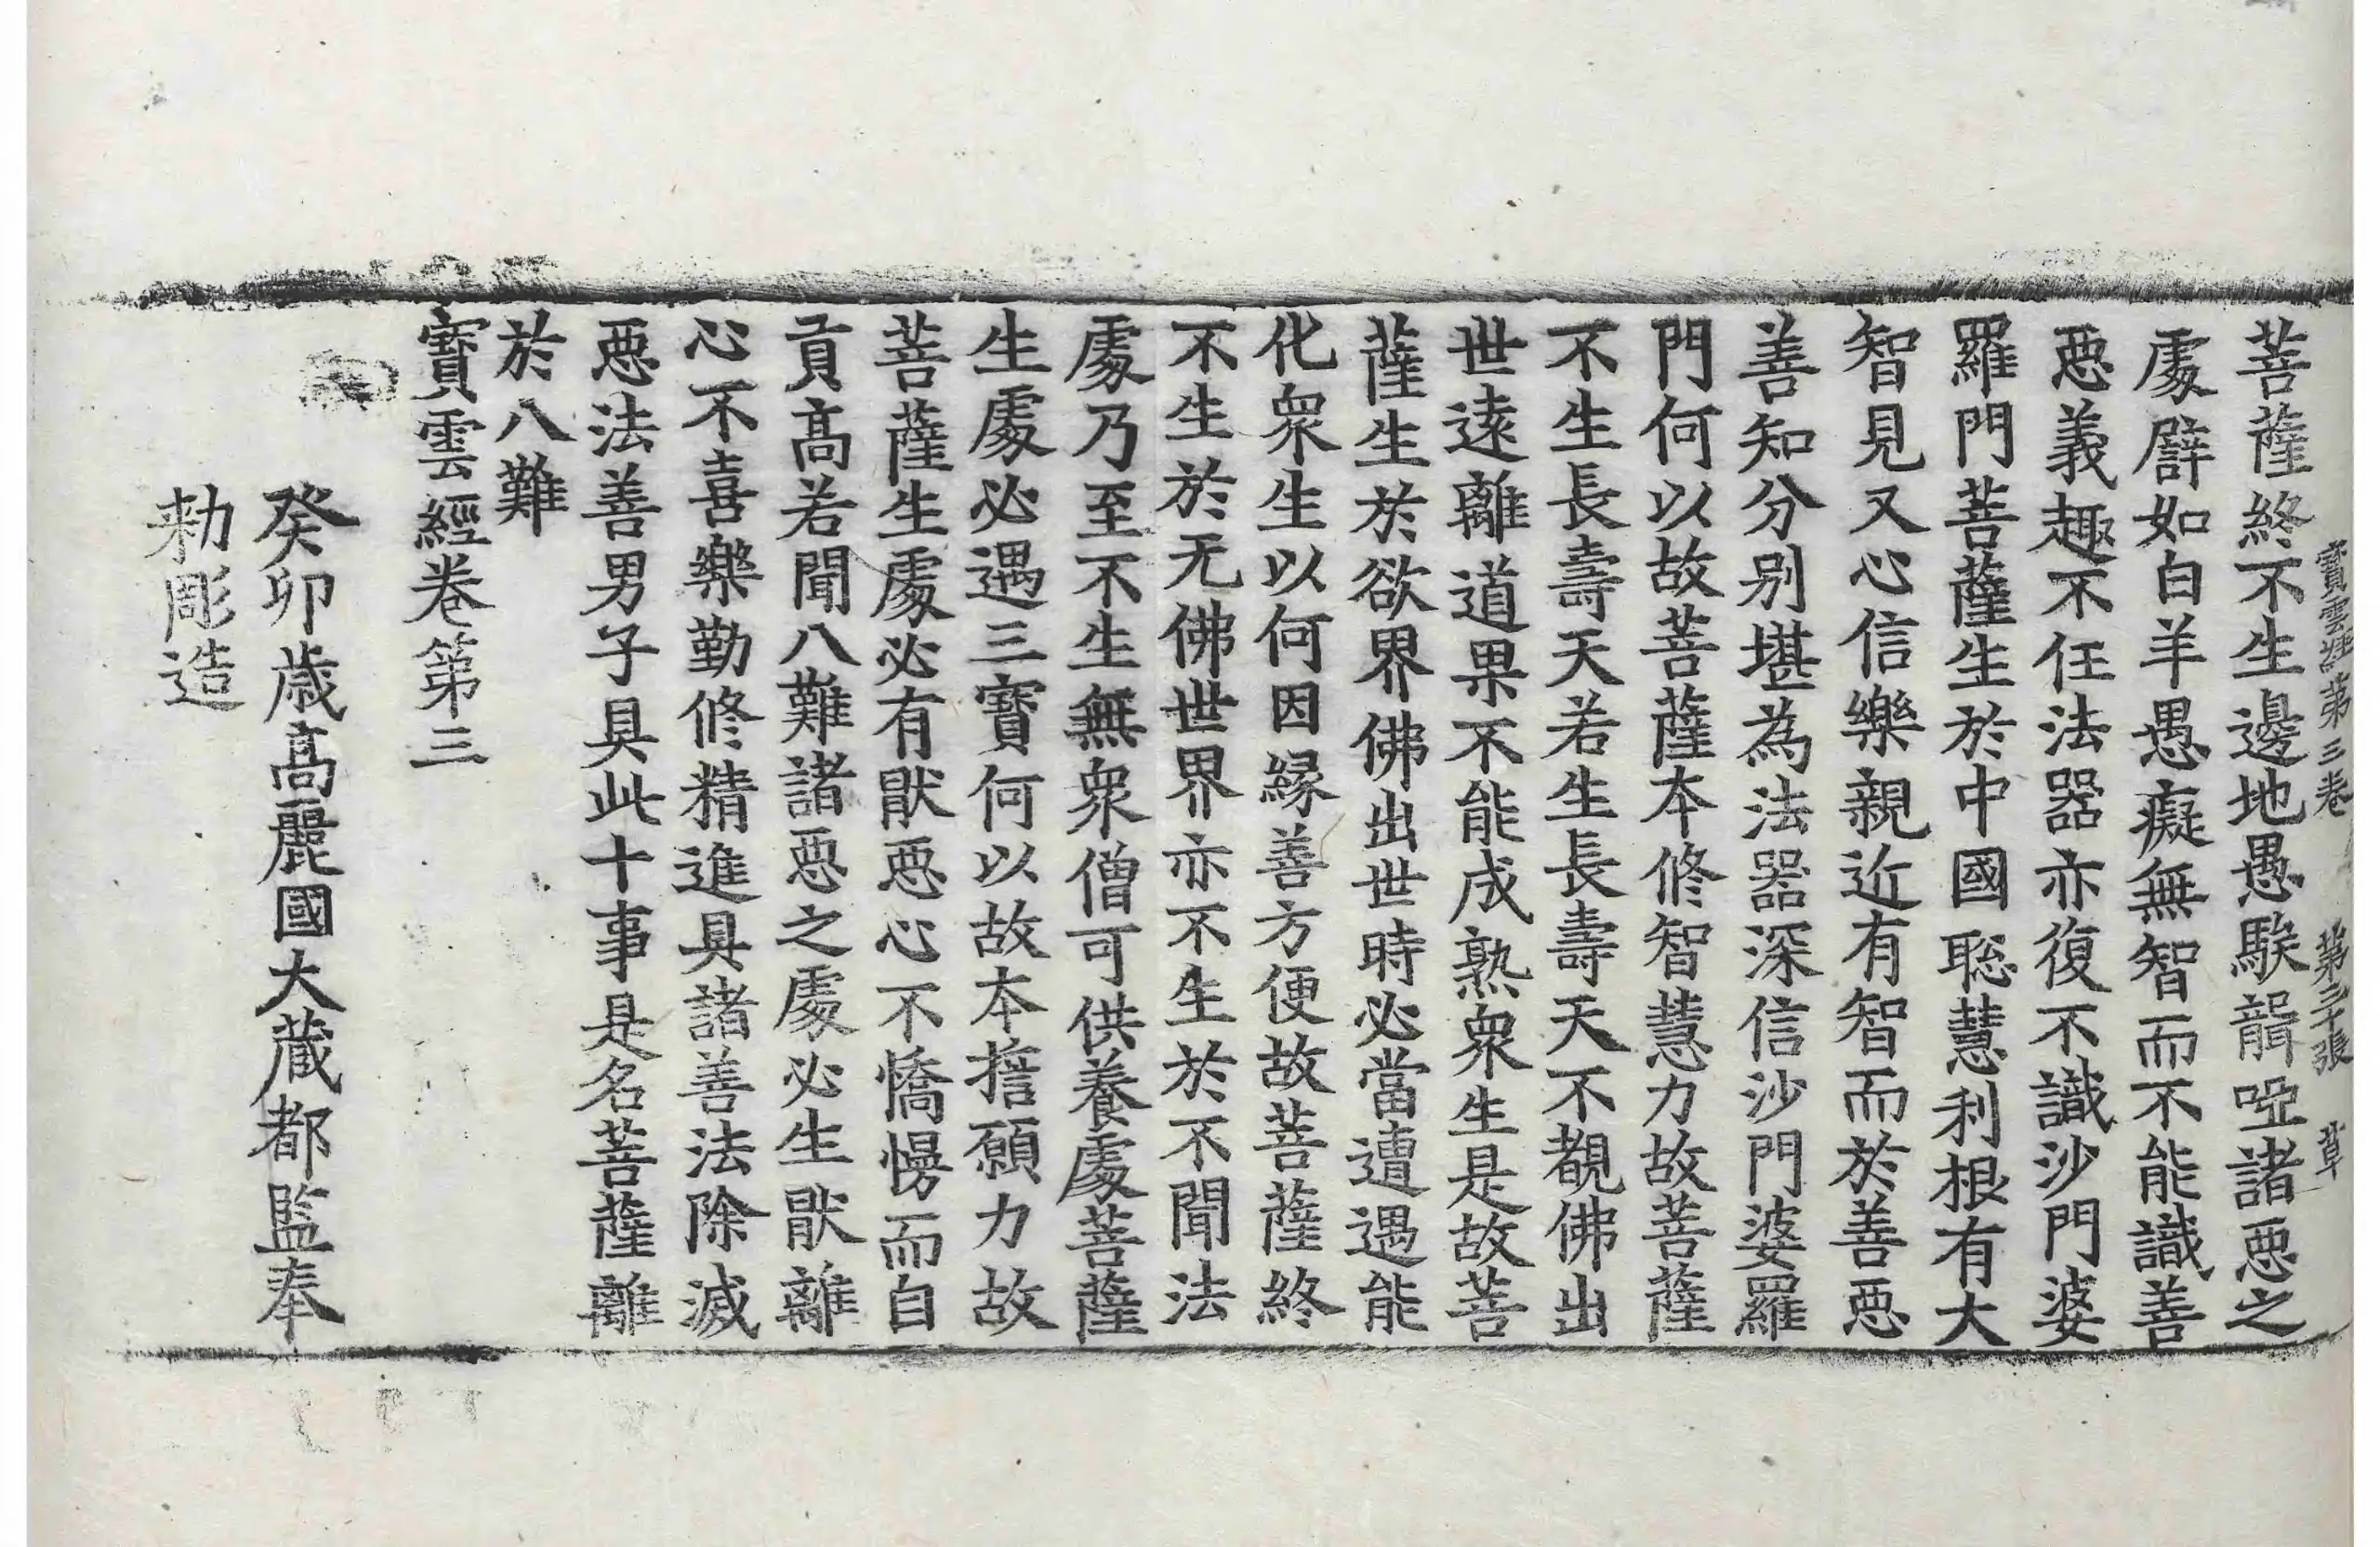 寶雲經第三卷　第二十張　草
菩薩終不生邊地愚騃聾啞諸惡之
處譬如白羊愚癡無智而不能識善
惡義趣不任法器亦復不識沙門婆
羅門菩薩生於中國聡慧利根有大
智見又心信樂親近有智而於善惡
善知分別堪為法器深信沙門婆羅
門何以故菩薩本修智慧力故菩薩
不生長壽天若生長壽天不覩佛出
世遠離道果不能成熟衆生是故菩
薩生於欲界佛出世時必當遭遇能
化衆生以何因縁善方便故菩薩終
不生於无佛世界亦不生於不聞法
處乃至不生無衆僧可供養處菩薩
生處必遇三寶何以故本誓願力故
菩薩生處必有猒惡心不憍慢而自
貢高若聞八難諸惡之處必生猒離
心不喜樂勤修精進具諸善法除滅
惡法善男子具此十事是名菩薩離
於八難
寶雲經卷第三
癸卯歳高麗國大藏都監奉
勑彫造